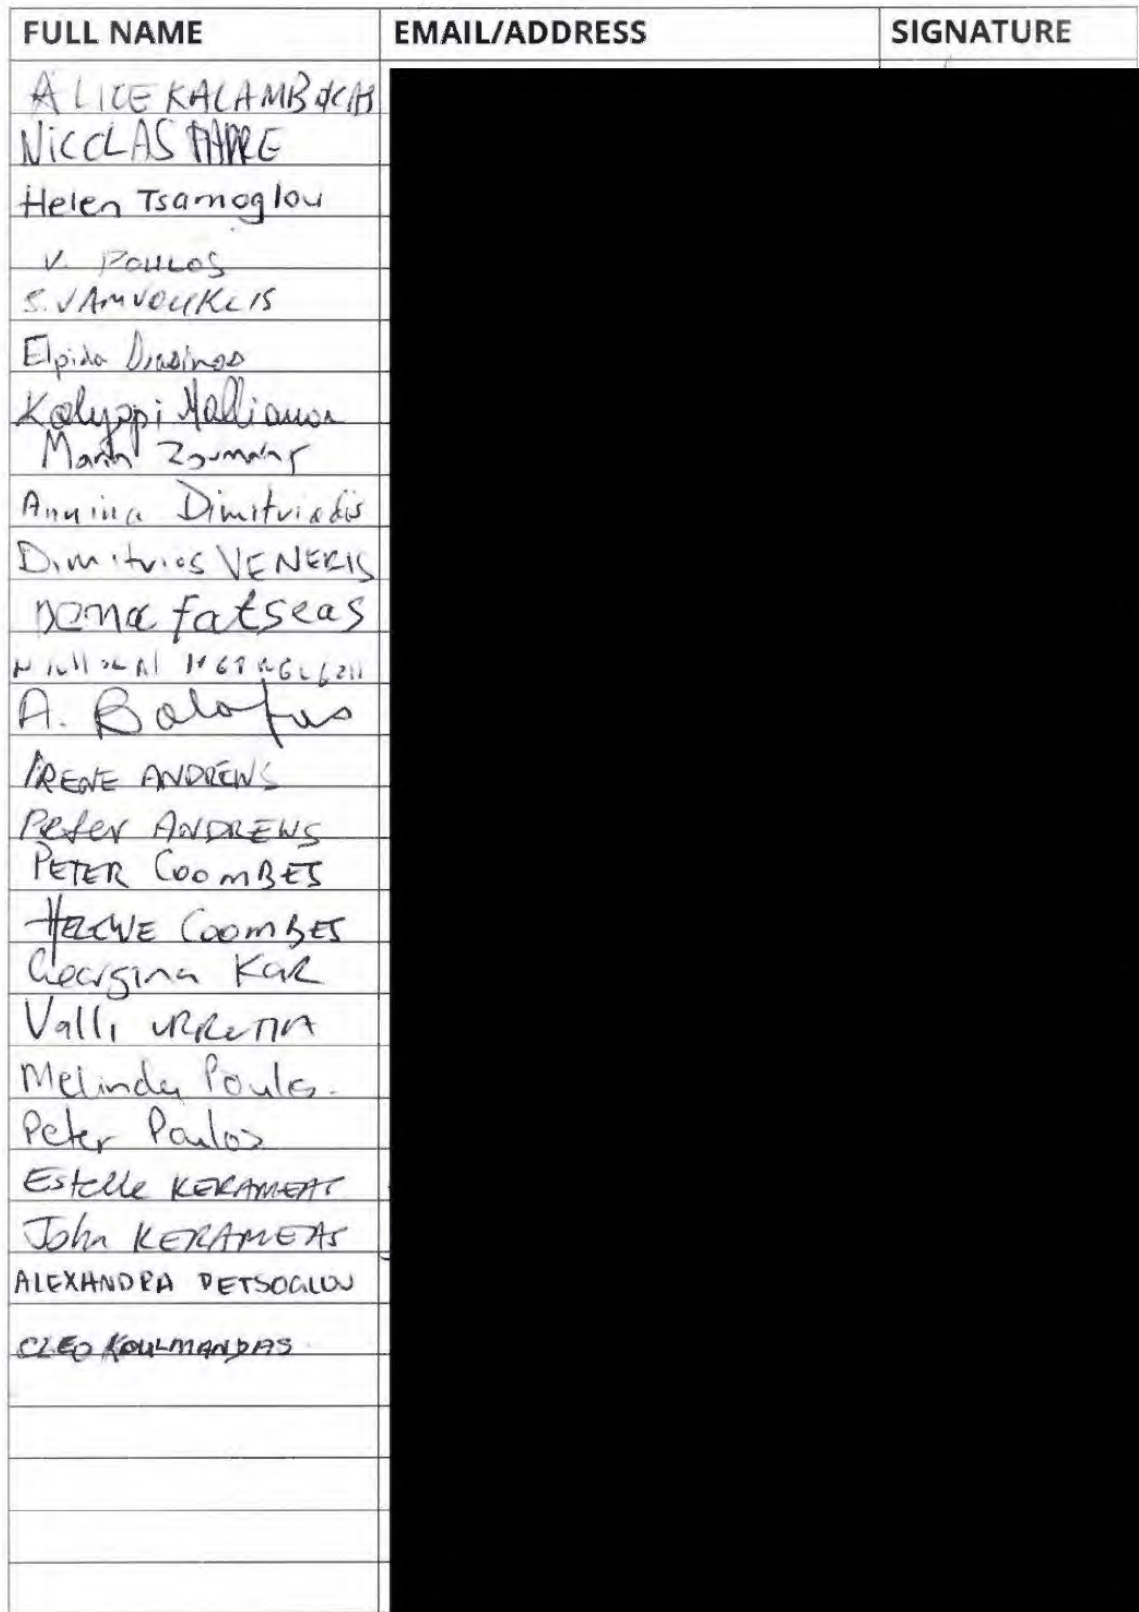 FULL NAME EMAIL/ADDRESS SIGNATURE
ALICE
NICOLAS
Helen Tsamoglou
V. POULOS
S. VAMVOUKLIS
Elpida
Kalyppi
Maria
Annina Dimitriadis
Dimitrios VENERIS
Dona fatseas
A.
IRENE ANDREWS
Peter ANDREWS
PETER COOMBES
COOMBES
Georgina Kar
Valli URRUTIA
Melinda Poulos.
Peter Poulos
Estelle KERAMEAS
John KERAMEAS
ALEXANDRA DETSOGLOU
CLEO KOULMANDAS